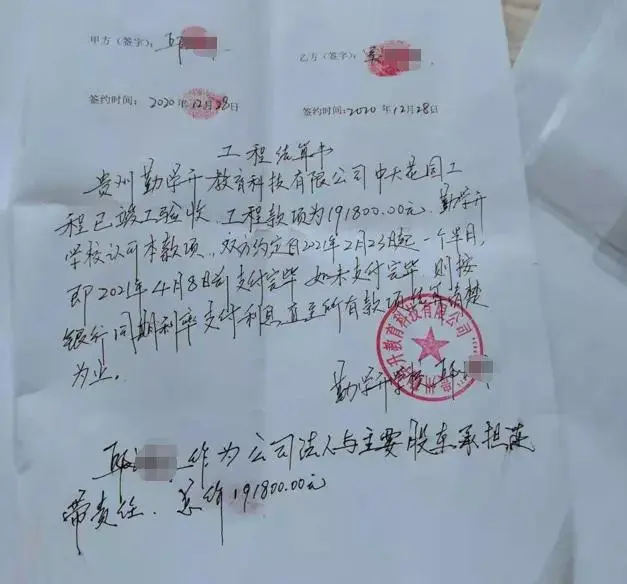 甲方（签字）：耶
乙方（签字）：吴
签约时间：2020年12月28日
签约时间：2020年12月28日
工程结算书
贵州勤学开教育科技有限公司中天花园工
程已竣工验收、工程款项为191800.00元、勤学开
学校认可本款项，双方约定自2021年2月23日起一个半月，
即2021年4月8日前支付完毕 如未支付完毕、则按
银行同期利率支付利息直至所有款项结算清楚
为止。
勤学开学校
作为公司法人与主要股东承担连
带责任、总价191800.00元
开教育科技有限公司